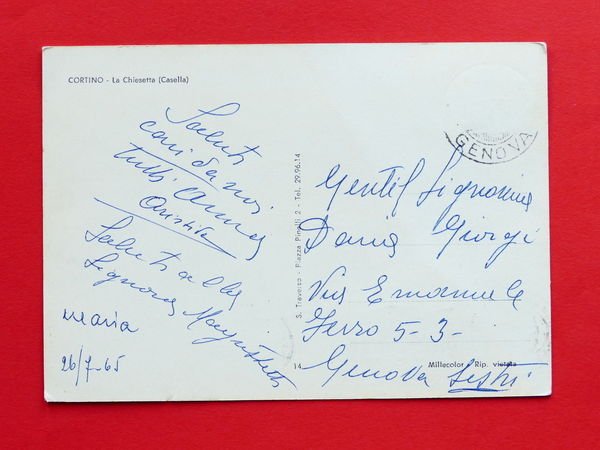 CORTINO - La Chiesetta (Casella)
Saluti
cari da noi
tutti Anna
Saluti alla
Signora
maria
26/7-65
S. Traverso - Piazza Pinelli 2 - Tel. 29.96.14
GENOVA
Gentil Signorina
Daria Giorgi
Via Emanuele
Ferro 5-3-
Genova Sestri
14 Millecolor - Rip. vietata